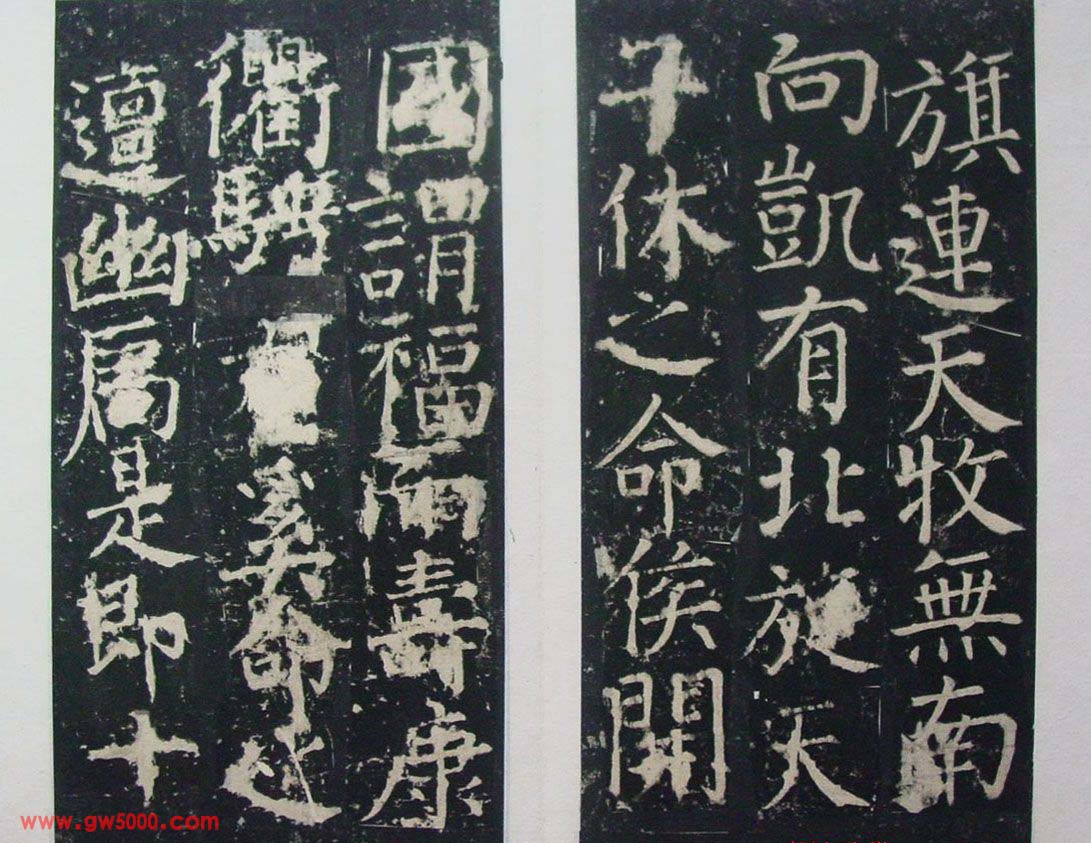 旗連天牧無南
向凱有北旋天
子休之命侯開
國謂福而壽康
衢騁奚命之
邅幽扃是即十
www.gw5000.com